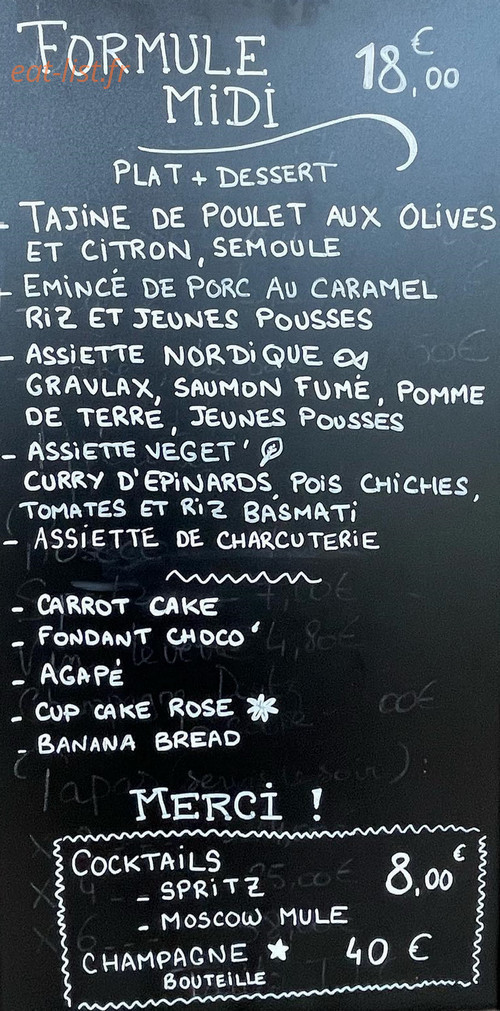 FORMULE 18,00€
eat-list.fr
MIDI
PLAT + DESSERT
- TAJINE DE POULET AUX OLIVES
ET CITRON, SEMOULE
- EMINCÉ DE PORC AU CARAMEL
RIZ ET JEUNES POUSSES
- ASSIETTE NORDIQUE
GRAVLAX, SAUMON FUMÉ, POMME
DE TERRE, JEUNES POUSSES
- ASSIETTE VEGET'
CURRY D'EPINARDS, POIS CHICHES,
TOMATES ET RIZ BASMATI
- ASSIETTE DE CHARCUTERIE
- CARROT CAKE
- FONDANT CHOCO'
- AGAPÉ
- CUP CAKE ROSE
- BANANA BREAD
MERCI !
COCKTAILS 8,00€
- SPRITZ
- MOSCOW MULE
CHAMPAGNE ★ 40 €
BOUTEILLE